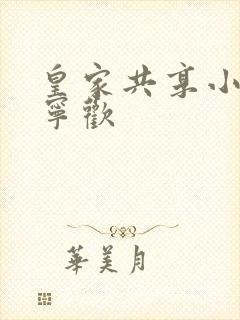 皇家共享小
寧歡
華美月